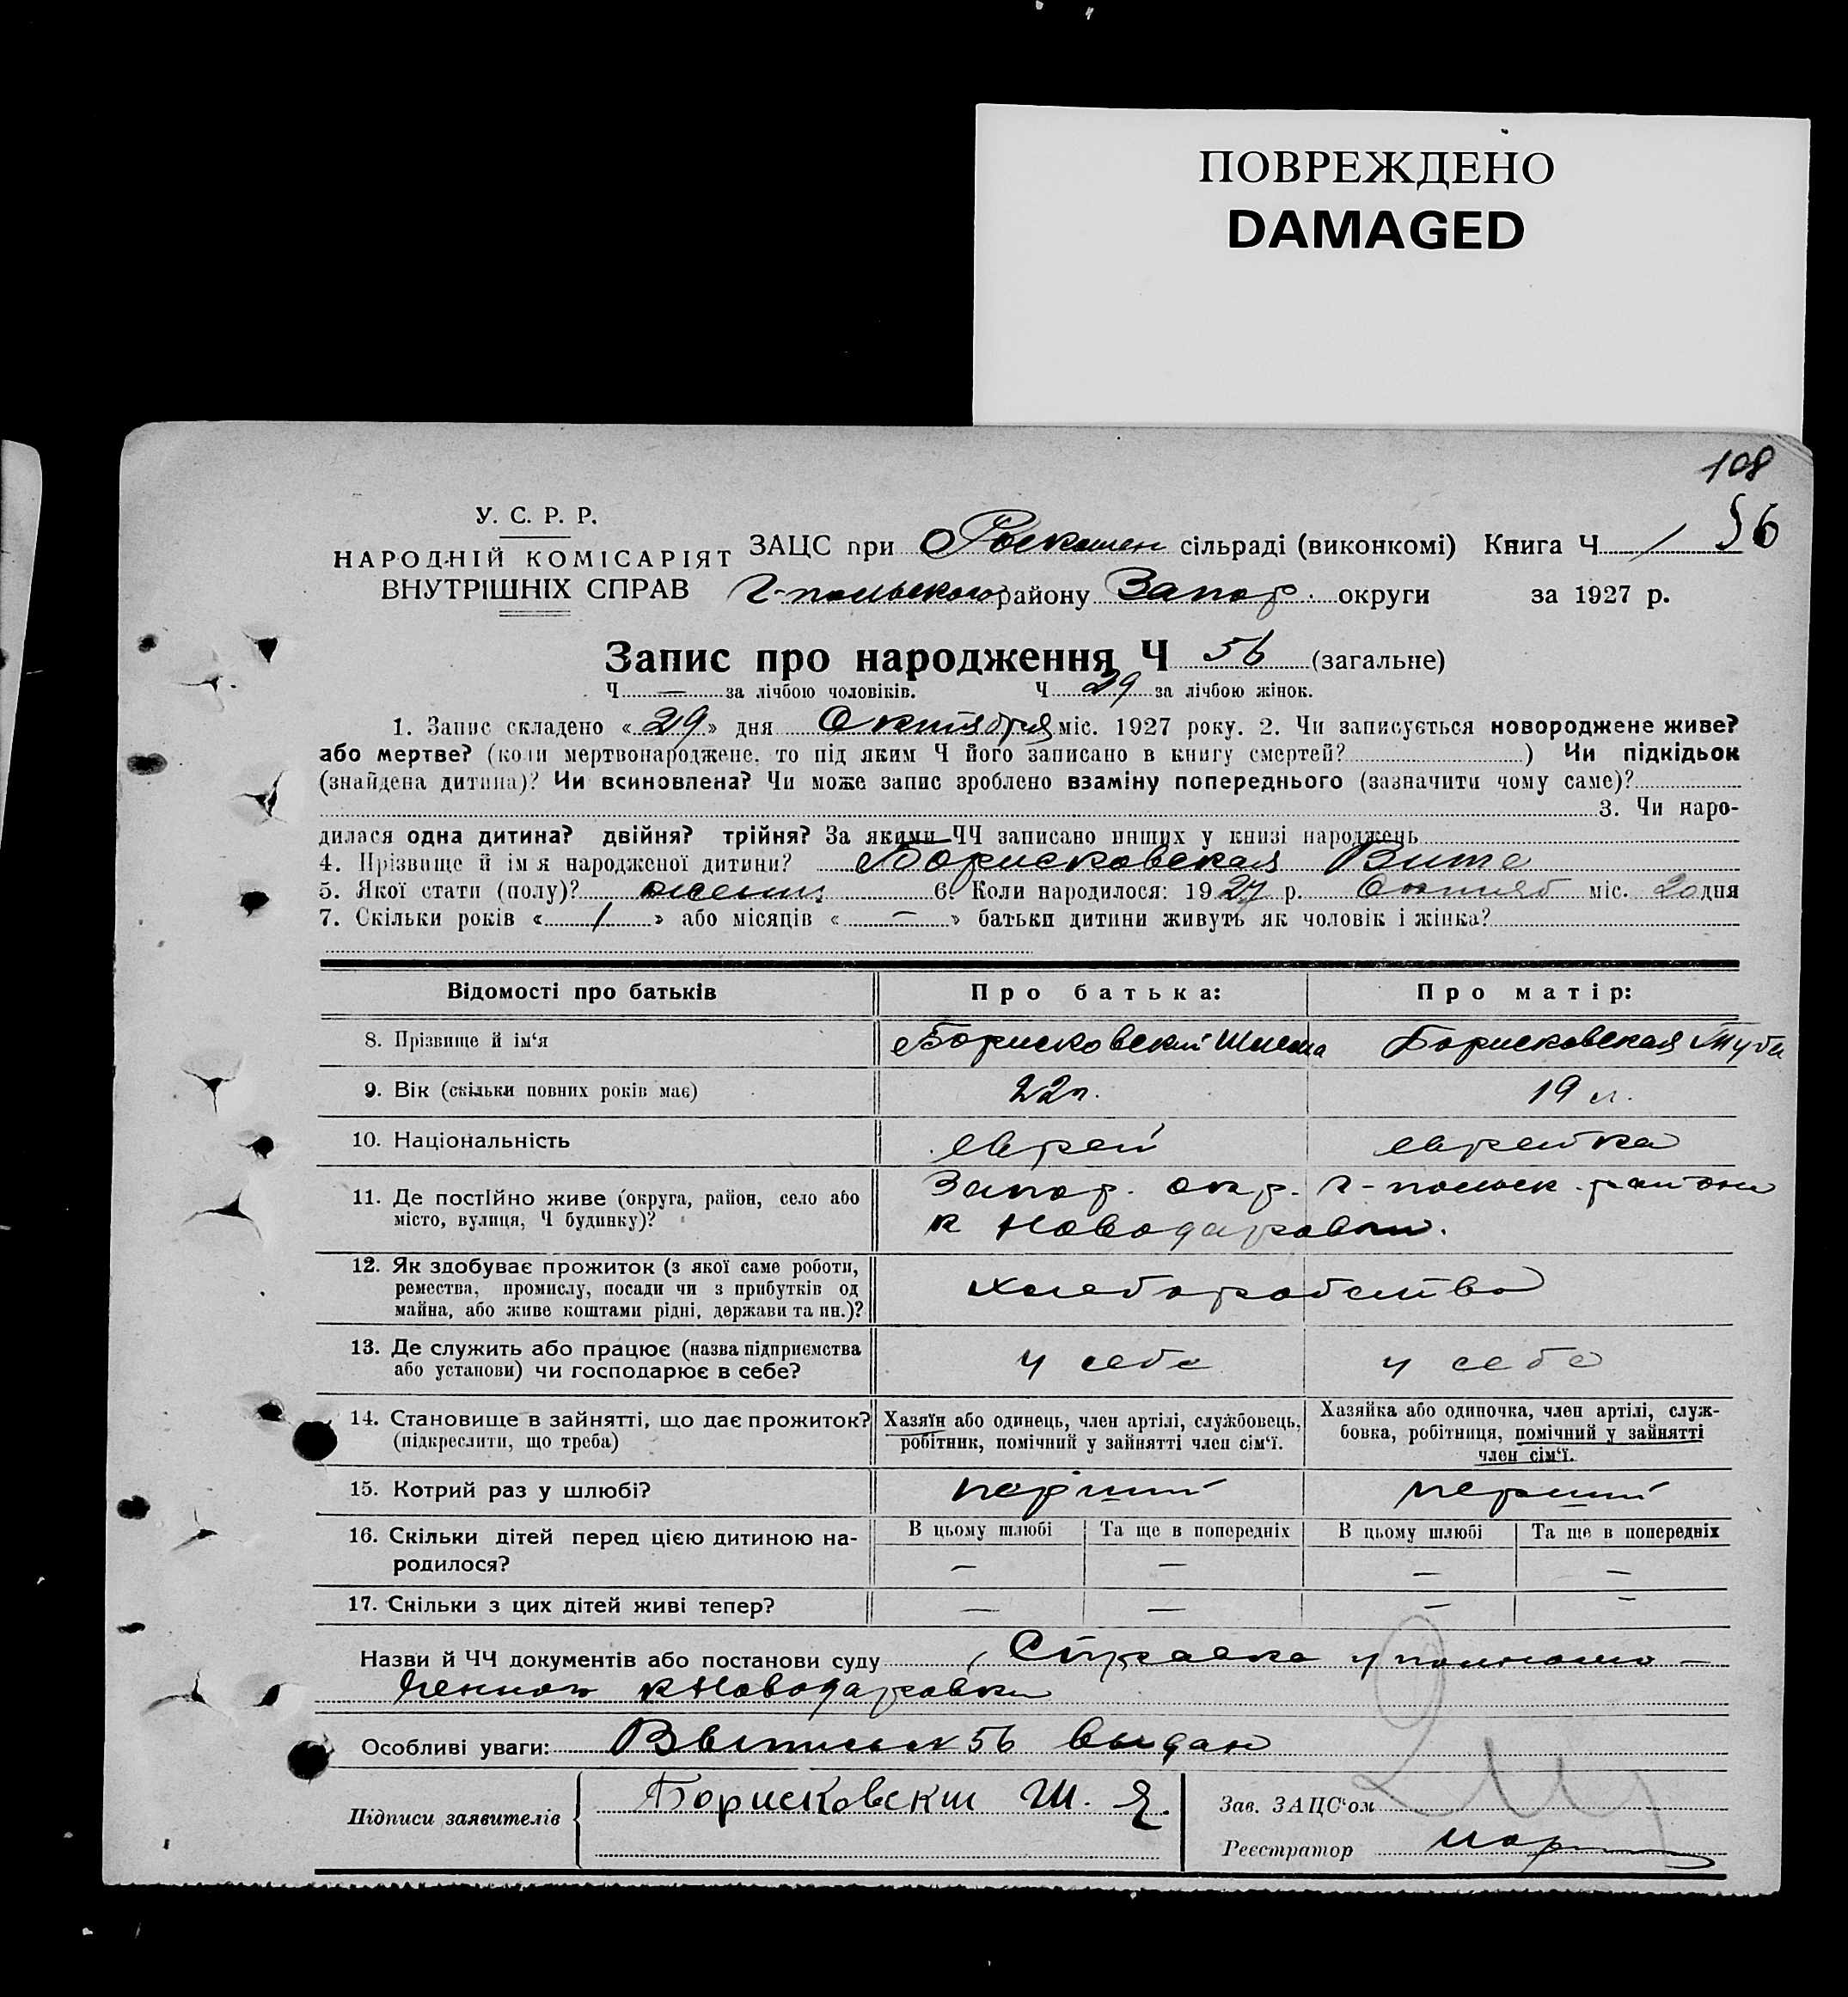 ПОВРЕЖДЕНО
DAMAGED
108
56
У. С. Р. Р.
НАРОДНІЙ КОМІСАРІЯТ
ВНУТРІШНІХ СПРАВ
ЗАЦС при сільраді (виконкомі) Книга Ч 1
г-польского району Запор. округи за 1927 р.
Запис про народження Ч 56 (загальне)
Ч — за лічбою чоловіків. Ч 29 за лічбою жінок.
1. Запис складено «29» дня Октября міс. 1927 року. 2. Чи записується новороджене живе?
або мертве? (коли мертвонароджене, то під яким Ч його записано в книгу смертей? ) Чи підкідьок
(знайдена дитина)? Чи всиновлена? Чи може запис зроблено взаміну попереднього (зазначити чому саме)?
3. Чи наро-
дилася одна дитина? двійня? трійня? За якими ЧЧ записано инших у книзі народжень
4. Прізвище й ім'я народженої дитини? Борисковская
5. Якої стати (полу)? женщ. 6. Коли народилося: 1927 р. Октяб міс. 20 дня
7. Скільки років « 1 » або місяців « — » батьки дитини живуть як чоловік і жінка?
Відомості про батьків
Про батька:
Про матір:
8. Прізвище й ім'я
Борисковский
Борисковская
9. Вік (скільки повних років має)
22 л.
19 л.
10. Національність
еврей
еврейка
11. Де постійно живе (округа, район, село або
місто, вулиця, Ч будинку)?
Запор. окр. г-польск. района
к Новодаровки.
12. Як здобуває прожиток (з якої саме роботи,
ремества, промислу, посади чи з прибутків од
майна, або живе коштами рідні, держави та ин.)?
хлеборобство
13. Де служить або працює (назва підприємства
або установи) чи господарює в себе?
у себе
у себе
14. Становище в зайнятті, що дає прожиток?
(підкреслити, що треба)
Хазяїн або одинець, член артілі, службовець,
робітник, помічний у зайнятті член сім'ї.
Хазяйка або одиночка, член артілі, служ-
бовка, робітниця, помічний у зайнятті
член сім'ї.
15. Котрий раз у шлюбі?
перший
перший
16. Скільки дітей перед цією дитиною на-
родилося?
В цьому шлюбі Та ще в попередніх В цьому шлюбі Та ще в попередніх
— — — —
17. Скільки з цих дітей живі тепер?
— — — —
Назви й ЧЧ документів або постанови суду Справка уполномо-
ченного к Новодаровки
Особливі уваги: 56 выдан
Підписи заявителів
Борисковски Ш. Я.
Зав. ЗАЦС'ом
Реєстратор